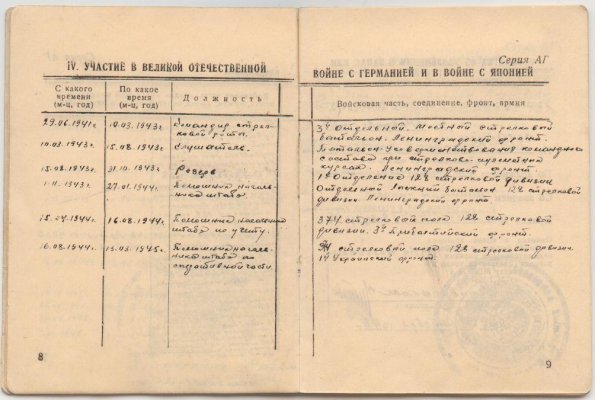 IV. УЧАСТИЕ В ВЕЛИКОЙ ОТЕЧЕСТВЕННОЙ
С какого времени (м-ц, год)
По какое время (м-ц, год)
Должность
29.06.1941г. 10.03.1943г. Командир стрел-
ковой роты.
10.03.1943г. 15.08.1943г. Слушатель.
15.08.1943г. 31.10.1943г. Резерв
1-11.1943г. 27.01.1944г. Помощник началь-
ника штаба
15.27.1944г. 16.08.1944г. Помощник начальника
штаба по учету.
16.08.1944г. 13.03.1945г. Помощник началь-
ника штаба по
оперативной части.
8
Серия АГ
ВОЙНЕ С ГЕРМАНИЕЙ И В ВОЙНЕ С ЯПОНИЕЙ
Войсковая часть, соединение, фронт, армия
3й Отдельной. Местной стрелковой
батальон. Ленинградский фронт.
Батальон Усовершенствования командного
состава при стрелково-
курсах. Ленинградский фронт
Отделение 128 стрелковой дивизии
Отдельной батальон 128 стрелковой
дивизии. Ленинградской фронт.
374 стрелковой полк 128 стрелковой
дивизии. 3й Прибалтийский фронт.
стрелковой полк 128 стрелковой дивизии.
1й Украинский фронт.
9